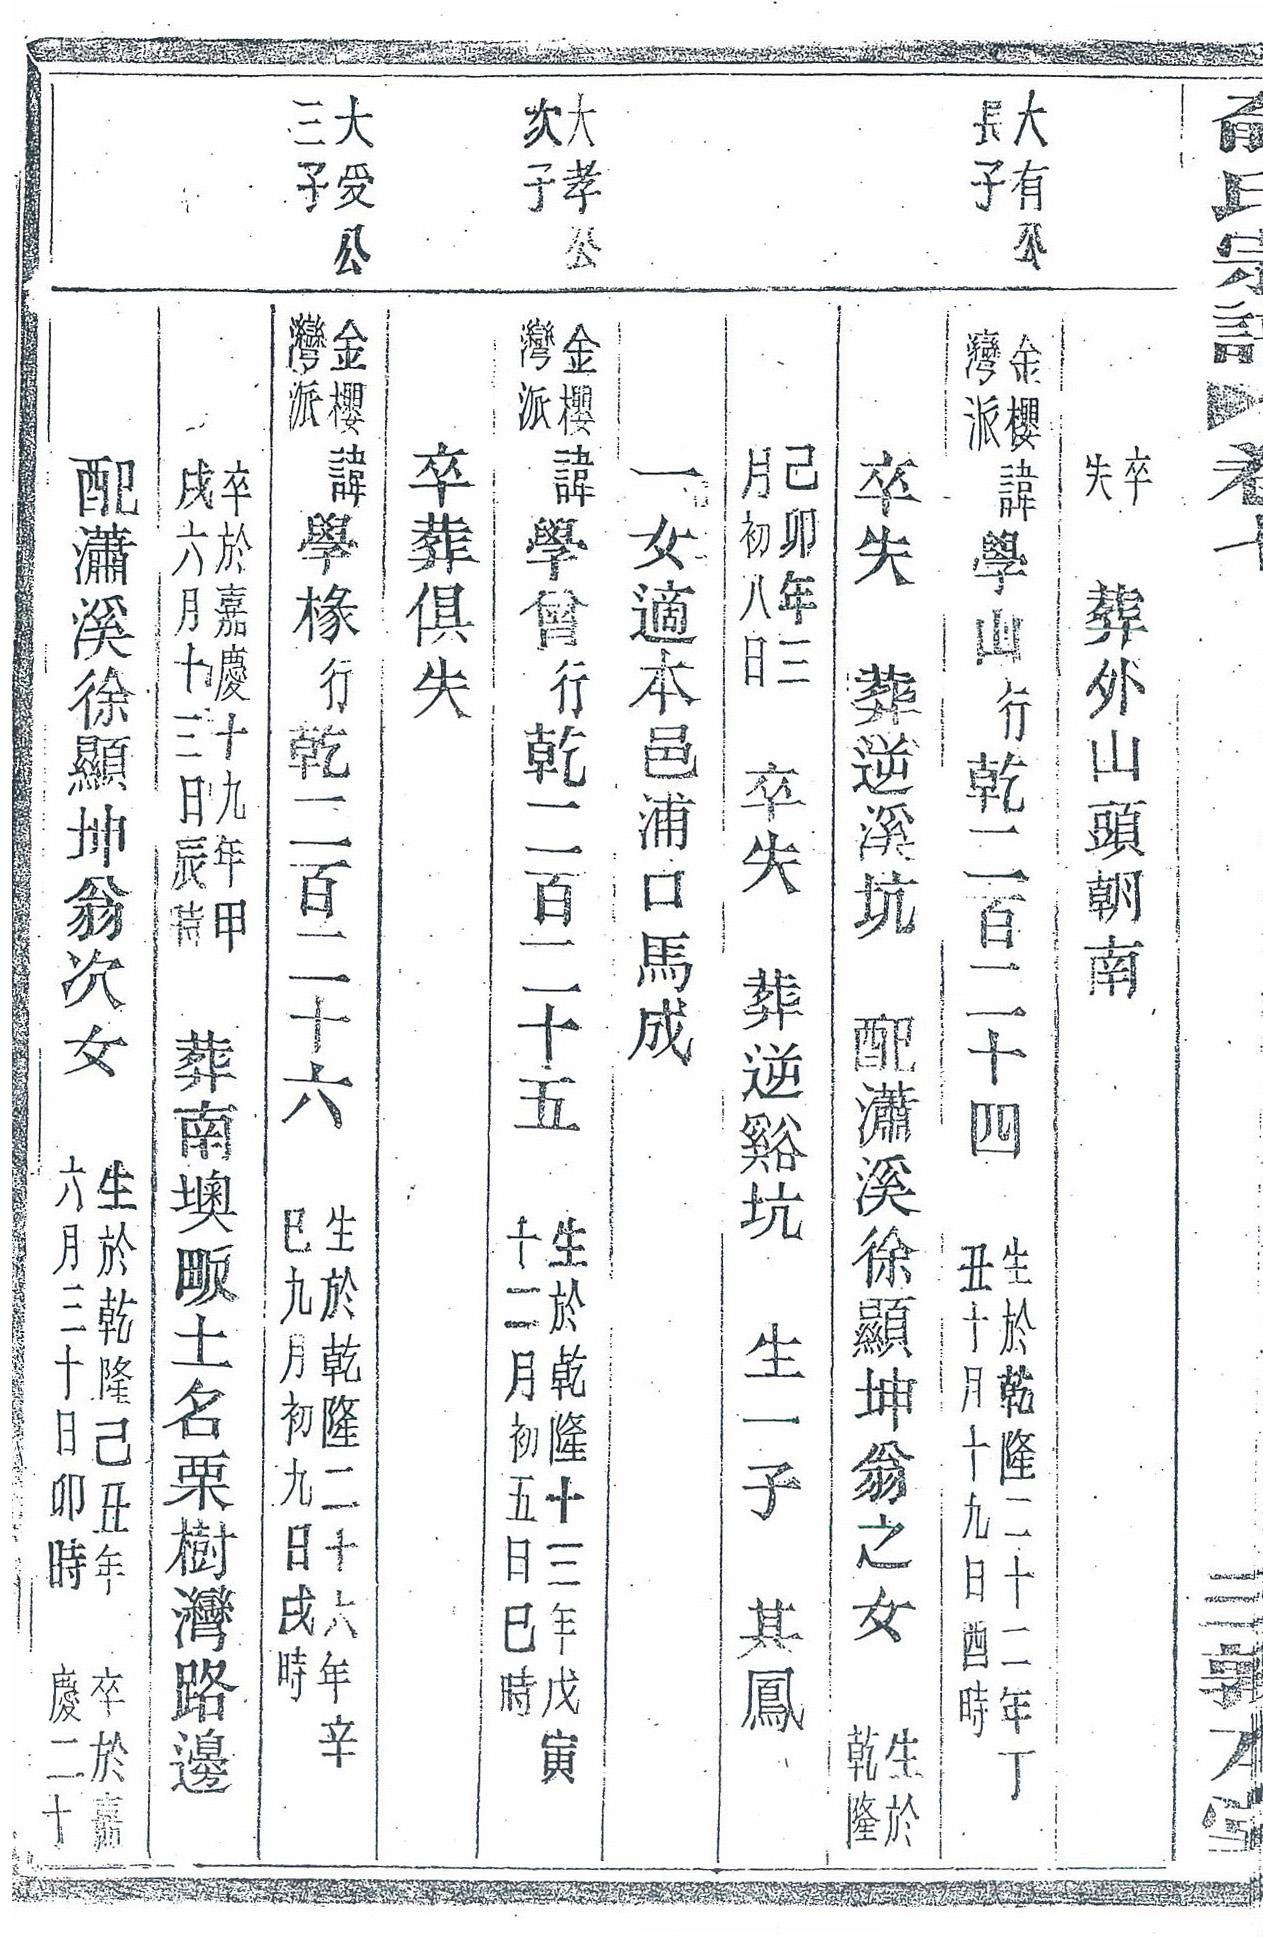 俞氏宗譜 卷十 三 敦本堂
卒失 葬外山頭朝南
大有公長子
金櫻灣派 諱學山行乾二百二十四 生於乾隆二十二年丁丑十月十九日酉時
卒失 葬逆溪坑 配瀟溪徐顯坤翁之女 生於乾隆
己卯年三月初八日 卒失 葬逆谿坑 生一子 其鳳
一女適本邑浦口馬成
大孝公次子
金櫻灣派 諱學曾行乾二百二十五 生於乾隆十三年戊寅十二月初五日巳時
卒葬俱失
大受公三子
金櫻灣派 諱學椽行乾二百二十六 生於乾隆二十六年辛巳九月初九日戌時
卒於嘉慶十九年甲戌六月十三日辰時 葬南墺畈土名栗樹灣路邊
配瀟溪徐顯坤翁次女 生於乾隆己丑年六月三十日卯時 卒於嘉慶二十